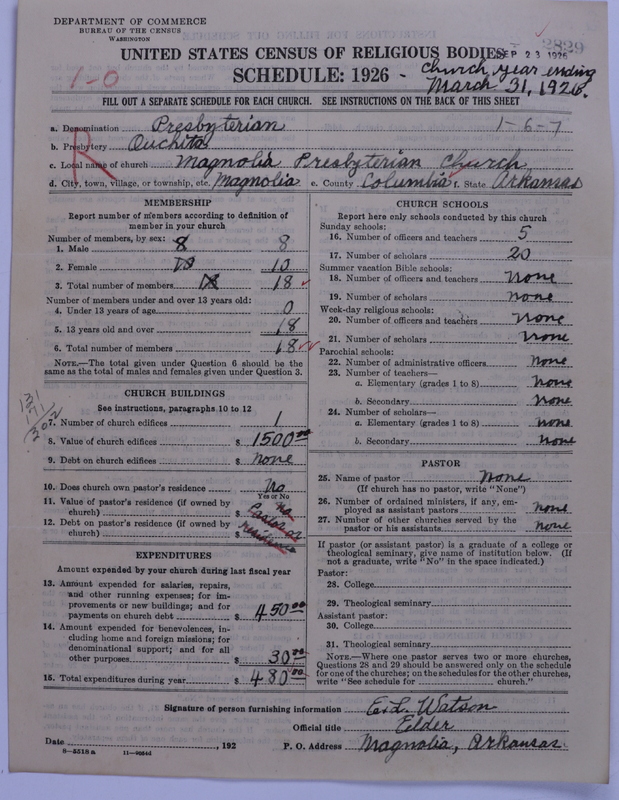 DEPARTMENT OF COMMERCE
BUREAU OF THE CENSUS
WASHINGTON
2829
SEP 23 1926
UNITED STATES CENSUS OF RELIGIOUS BODIES
SCHEDULE: 1926 - Church year ending March 31, 1926.
1-0
FILL OUT A SEPARATE SCHEDULE FOR EACH CHURCH. SEE INSTRUCTIONS ON THE BACK OF THIS SHEET
a. Denomination Presbyterian 1-6-7
b. Presbytery Ouchita
R
c. Local name of church Magnolia Presbyterian Church
d. City, town, village, or township, etc. Magnolia e. County Columbia f. State Arkansas
MEMBERSHIP
Report number of members according to definition of
member in your church
Number of members, by sex:
1. Male 8 8
2. Female 10 10
3. Total number of members 18 18
Number of members under and over 13 years old:
4. Under 13 years of age 0
5. 13 years old and over 18
6. Total number of members 18
NOTE.—The total given under Question 6 should be the
same as the total of males and females given under Question 3.
CHURCH BUILDINGS
See instructions, paragraphs 10 to 12
131
171
302
7. Number of church edifices 1
8. Value of church edifices $ 1500.00
9. Debt on church edifices $ None
10. Does church own pastor's residence No
Yes or No
11. Value of pastor's residence (if owned by
church) $ no Pastor or
12. Debt on pastor's residence (if owned by
church) $ residence
EXPENDITURES
Amount expended by your church during last fiscal year
13. Amount expended for salaries, repairs,
and other running expenses; for im-
provements or new buildings; and for
payments on church debt $ 450.00
14. Amount expended for benevolences, in-
cluding home and foreign missions; for
denominational support; and for all
other purposes $ 30.00
15. Total expenditures during year $ 480.00
CHURCH SCHOOLS
Report here only schools conducted by this church
Sunday schools:
16. Number of officers and teachers 5
17. Number of scholars 20
Summer vacation Bible schools:
18. Number of officers and teachers None
19. Number of scholars None
Week-day religious schools:
20. Number of officers and teachers None
21. Number of scholars None
Parochial schools:
22. Number of administrative officers None
23. Number of teachers—
a. Elementary (grades 1 to 8) None
b. Secondary None
24. Number of scholars—
a. Elementary (grades 1 to 8) None
b. Secondary None
PASTOR
25. Name of pastor None
(If church has no pastor, write "None")
26. Number of ordained ministers, if any, em-
ployed as assistant pastors None
27. Number of other churches served by the
pastor or his assistants None
If pastor (or assistant pastor) is a graduate of a college or
theological seminary, give name of institution below. (If
not a graduate, write "No" in the space indicated.)
Pastor:
28. College
29. Theological seminary
Assistant pastor:
30. College
31. Theological seminary
NOTE.—Where one pastor serves two or more churches,
Questions 28 and 29 should be answered only on the schedule
for one of the churches; on the schedules for the other churches,
write "See schedule for church."
Signature of person furnishing information E.L. Watson
Official title Elder
Date , 192 P. O. Address Magnolia, Arkansas
8—5518 a